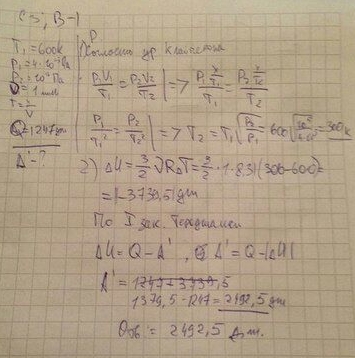 С5, В-1
T₁ = 600К
P₁ = 4·10⁻⁵ Па
P₂ = 10⁻⁵ Па
ν = 1 моль
T = 2/V
Q = 1247 Дж
A' - ?
Р
Согласно ур Клапейрона
P₁V₁/T₁ = P₂V₂/T₂ => P₁ 2/T₁ / T₁ = P₂ 2/T₂ / T₂
P₁/T₁² = P₂/T₂² => T₂ = T₁√(P₂/P₁) = 600 = 300К
2) ΔU = 3/2 νRΔT = 3/2 · 1 · 8,31(300-600) =
= |-3739,5| Дж
По I зак. Термодинам
ΔU = Q - A', A' = Q - |ΔU|
A' = 1247 + 3739,5
1379,5 - 1247 = 2492,5 Дж
Отв = 2492,5 Дж.